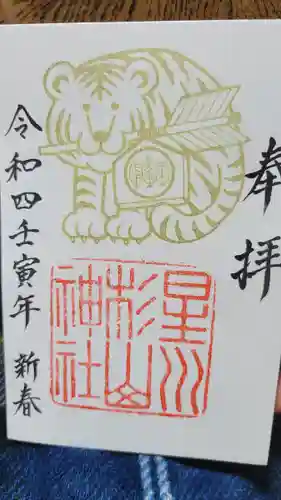 奉拝
星川
杉山
神社
令和四壬寅年 新春